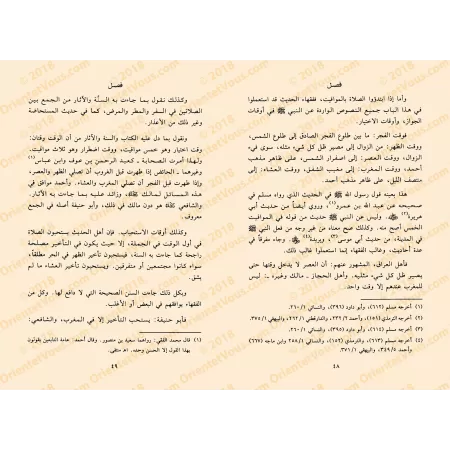 فصـل
وأما إذا ابتدؤوا الصلاة بالمواقيت، ففقهاء الحديث قد استعملوا
في هذا الباب جميع النصوص الواردة عن النبي ﷺ في أوقات
الجواز، وأوقات الاختيار.
فوقت الفجر: ما بين طلوع الفجر الصادق إلى طلوع الشمس،
ووقت الظهر: من الزوال إلى مصير ظل كل شيء مثله، سوى فيء
الزوال، ووقت العصر: إلى اصفرار الشمس، على ظاهر مذهب
أحمد، ووقت المغرب: إلى مغيب الشفق، ووقت العشاء: إلى
منتصف الليل، على ظاهر مذهب أحمد.
هذا بعينه قول رسول الله ﷺ في الحديث الذي رواه مسلم في
صحيحه عن عبد الله بن عمرو(١)، وروي أيضاً من حديث أبي
هريرة(٢). وليس عن النبي ﷺ حديث من قوله في المواقيت
الخمس أصح منه. وكذلك صح معناه من غير وجه من فعل النبي ﷺ
في المدينة، من حديث أبي موسى(٣)، وبريدة(٤) ﷺ. وجاء مفرقاً في
عدة أحاديث، وغالب الفقهاء إنما استعملوا غالب ذلك.
فأهل العراق، المشهور عنهم: أن العصر لا يدخل وقتها حتى
يصير ظل كل شيء مثليه. وأهل الحجاز ـ مالك وغيره ـ: ليس
للمغرب عندهم إلا وقت واحد.
(١) أخرجه مسلم (٦١٢)، وأبو داود (٣٩٦)، والنسائي ٢٦٠/١.
(٢) أخرجه الترمذي (١٥١)، وأحمد ٢٣٢/٢، والدارقطني ٢٦٢/١، والبيهقي ٣٧٥/١.
(٣) أخرجه مسلم (٦١٤)، وأبو داود (٣٩٥)، والنسائي ٢٦٠/١.
(٤) أخرجه مسلم (٦١٣)، والترمذي (١٥٢)، والنسائي ٢٥٨/١ وابن ماجه (٦٦٧)
وأحمد ٣٤٩/٥، والبيهقي ٣٧١/١.
٤٨
فصـل
وكذلك نقول بما جاءت به السنّة والآثار من الجمع بين
الصلاتين في السفر والمطر والمرض، كما في حديث المستحاضة
وغير ذلك من الأعذار.
ونقول بما دل عليه الكتاب والسنة والآثار من أن الوقت وقتان:
وقت اختيار وهو خمس مواقيت، ووقت اضطرار وهو ثلاث مواقيت.
ولهذا أمرت الصحابة ـ كعبد الرحمن بن عوف وابن عباس(١)
وغيرهما ـ الحائض إذا طهرت قبل الغروب أن تصلي الظهر والعصر،
وإذا طهرت قبل الفجر أن تصلي المغرب والعشاء. وأحمد موافق في
هذه المسائل لمالك ﷺ، وزائد عليه بما جاءت به الآثار.
والشافعي ﷺ هو دون مالك في ذلك، وأبو حنيفة أصله في الجمع
معروف.
وكذلك أوقات الاستحباب. فإن أهل الحديث يستحبون الصلاة
في أول الوقت في الجملة، إلا حيث يكون في التأخير مصلحة
راجحة كما جاءت به السنة، فيستحبون تأخير الظهر في الحر مطلقاً،
سواء كانوا مجتمعين أو متفرقين. ويستحبون تأخير العشاء ما لم
يشق.
وبكل ذلك جاءت السنن الصحيحة التي لا دافع لها. وكل من
الفقهاء يوافقهم في البعض أو الأغلب.
فأبو حنيفة: يستحب التأخير إلا في المغرب، والشافعي:
(١) قال محمد الفقي: رواهما سعيد بن منصور. وقال أحمد: عامة التابعين يقولون
بهذا القول إلا الحسن وحده. اهـ منتقى.
٤٩